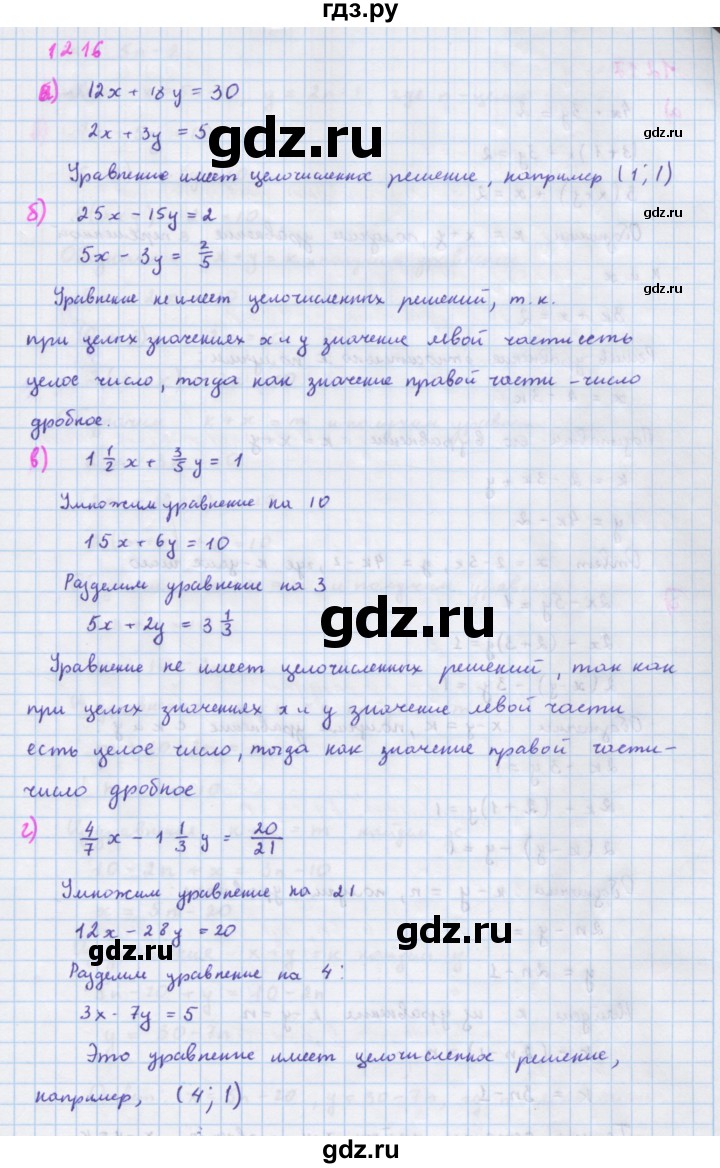 гдз.ру
1216
а) 12x + 18y = 30
2x + 3y = 5
gdz.ru
gdz.ru
Уравнение имеет целочисленное решение, например (1; 1)
б) 25x - 15y = 2
5x - 3y = 2/5
gdz.ru
Уравнение не имеет целочисленных решений, т.к.
при целых значениях x и y значение левой части есть
целое число, тогда как значение правой части - число
дробное.
в) 1 1/2 x + 3/5 y = 1
Умножим уравнение на 10
15x + 6y = 10
Разделим уравнение на 3
5x + 2y = 3 1/3
gdz.ru
Уравнение не имеет целочисленных решений, так как
при целых значениях x и y значение левой части
есть целое число, тогда как значение правой части -
число дробное
г) 4/7 x - 1 1/3 y = 20/21
Умножим уравнение на 21
12x - 28y = 20
gdz.ru
gdz.ru
Разделим уравнение на 4:
3x - 7y = 5
Это уравнение имеет целочисленное решение,
например, (4; 1)
gdz.ru